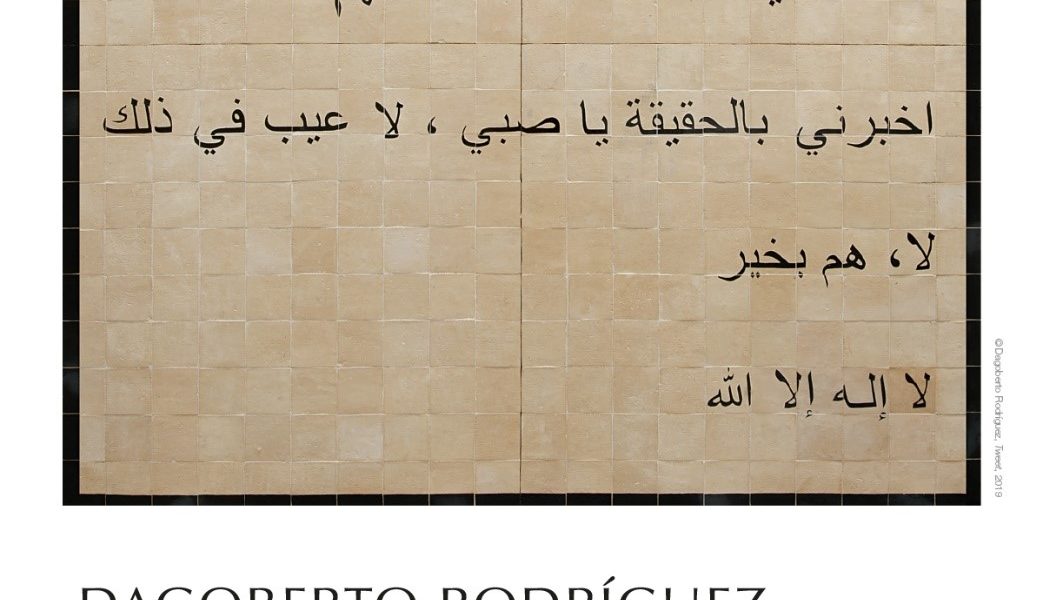 اخبرني بالحقيقة يا صبي ، لا عيب في ذلك
لا، هم بخير
لا إلـه إلا الله
©Dagoberto Rodríguez, Tweet, 2019
DAGOBERTO RODRÍGUEZ